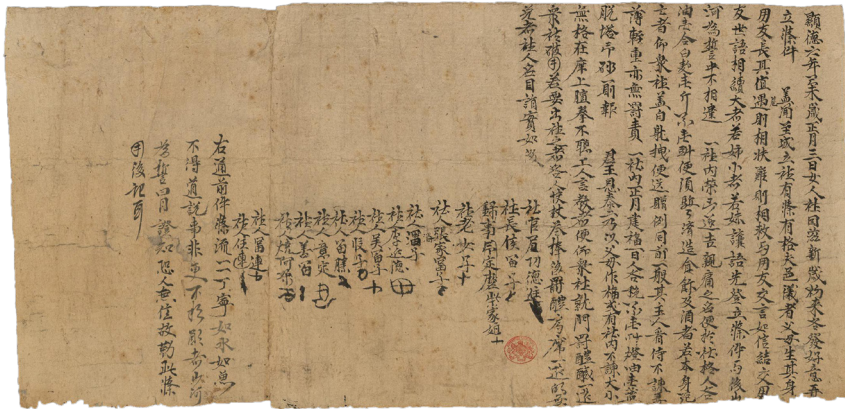 顯德六年己未歲正月三日女人社因茲新歲初來各發好意再
立條件　蓋聞至誠立社有條有格夫邑儀者父母生其身
朋友長其值遇危則相扶難則相救与朋友交言如信結交朋
友世語相續大者若姊小者若妹讓語先登立條件与後山
河為誓中不相違　一社內榮凶逐吉親痛之名便於社格人各
油壹合白麵壹斤粟壹斗便須驅驅濟造食飰及酒者若本身死
亡者仰衆社蓋白躭拽便送贈例同前一般其主人看侍不諫厚
薄輕重亦無罰責　一社內正月建福一日人各稅粟壹斗燈油壹盞
脫塔印砂一則報　君王恩泰二乃以父母作福或有社內不諫大小
無格在席上喧拳不聽上人言教者便仰衆社就門罰醴膩一筵
衆社破用若要出社之者各人決杖叄棒後罰醴局席一筵的無
免者社人名目詣實如後
社官尼功德進
社長侯富子
錄事印定磨柴家娘
社老女子
社人張家富子
社人渦子
社人李延德
社人吳富子
社人段子
社人富勝
社人意定
社人善富
社人燒阿朵
社人富連
社人住連
右通前件條流一一丁寧如水如魚
不得道說事非更不於願者山河
為誓日月證知恐人無信故勒此條
用後記耳